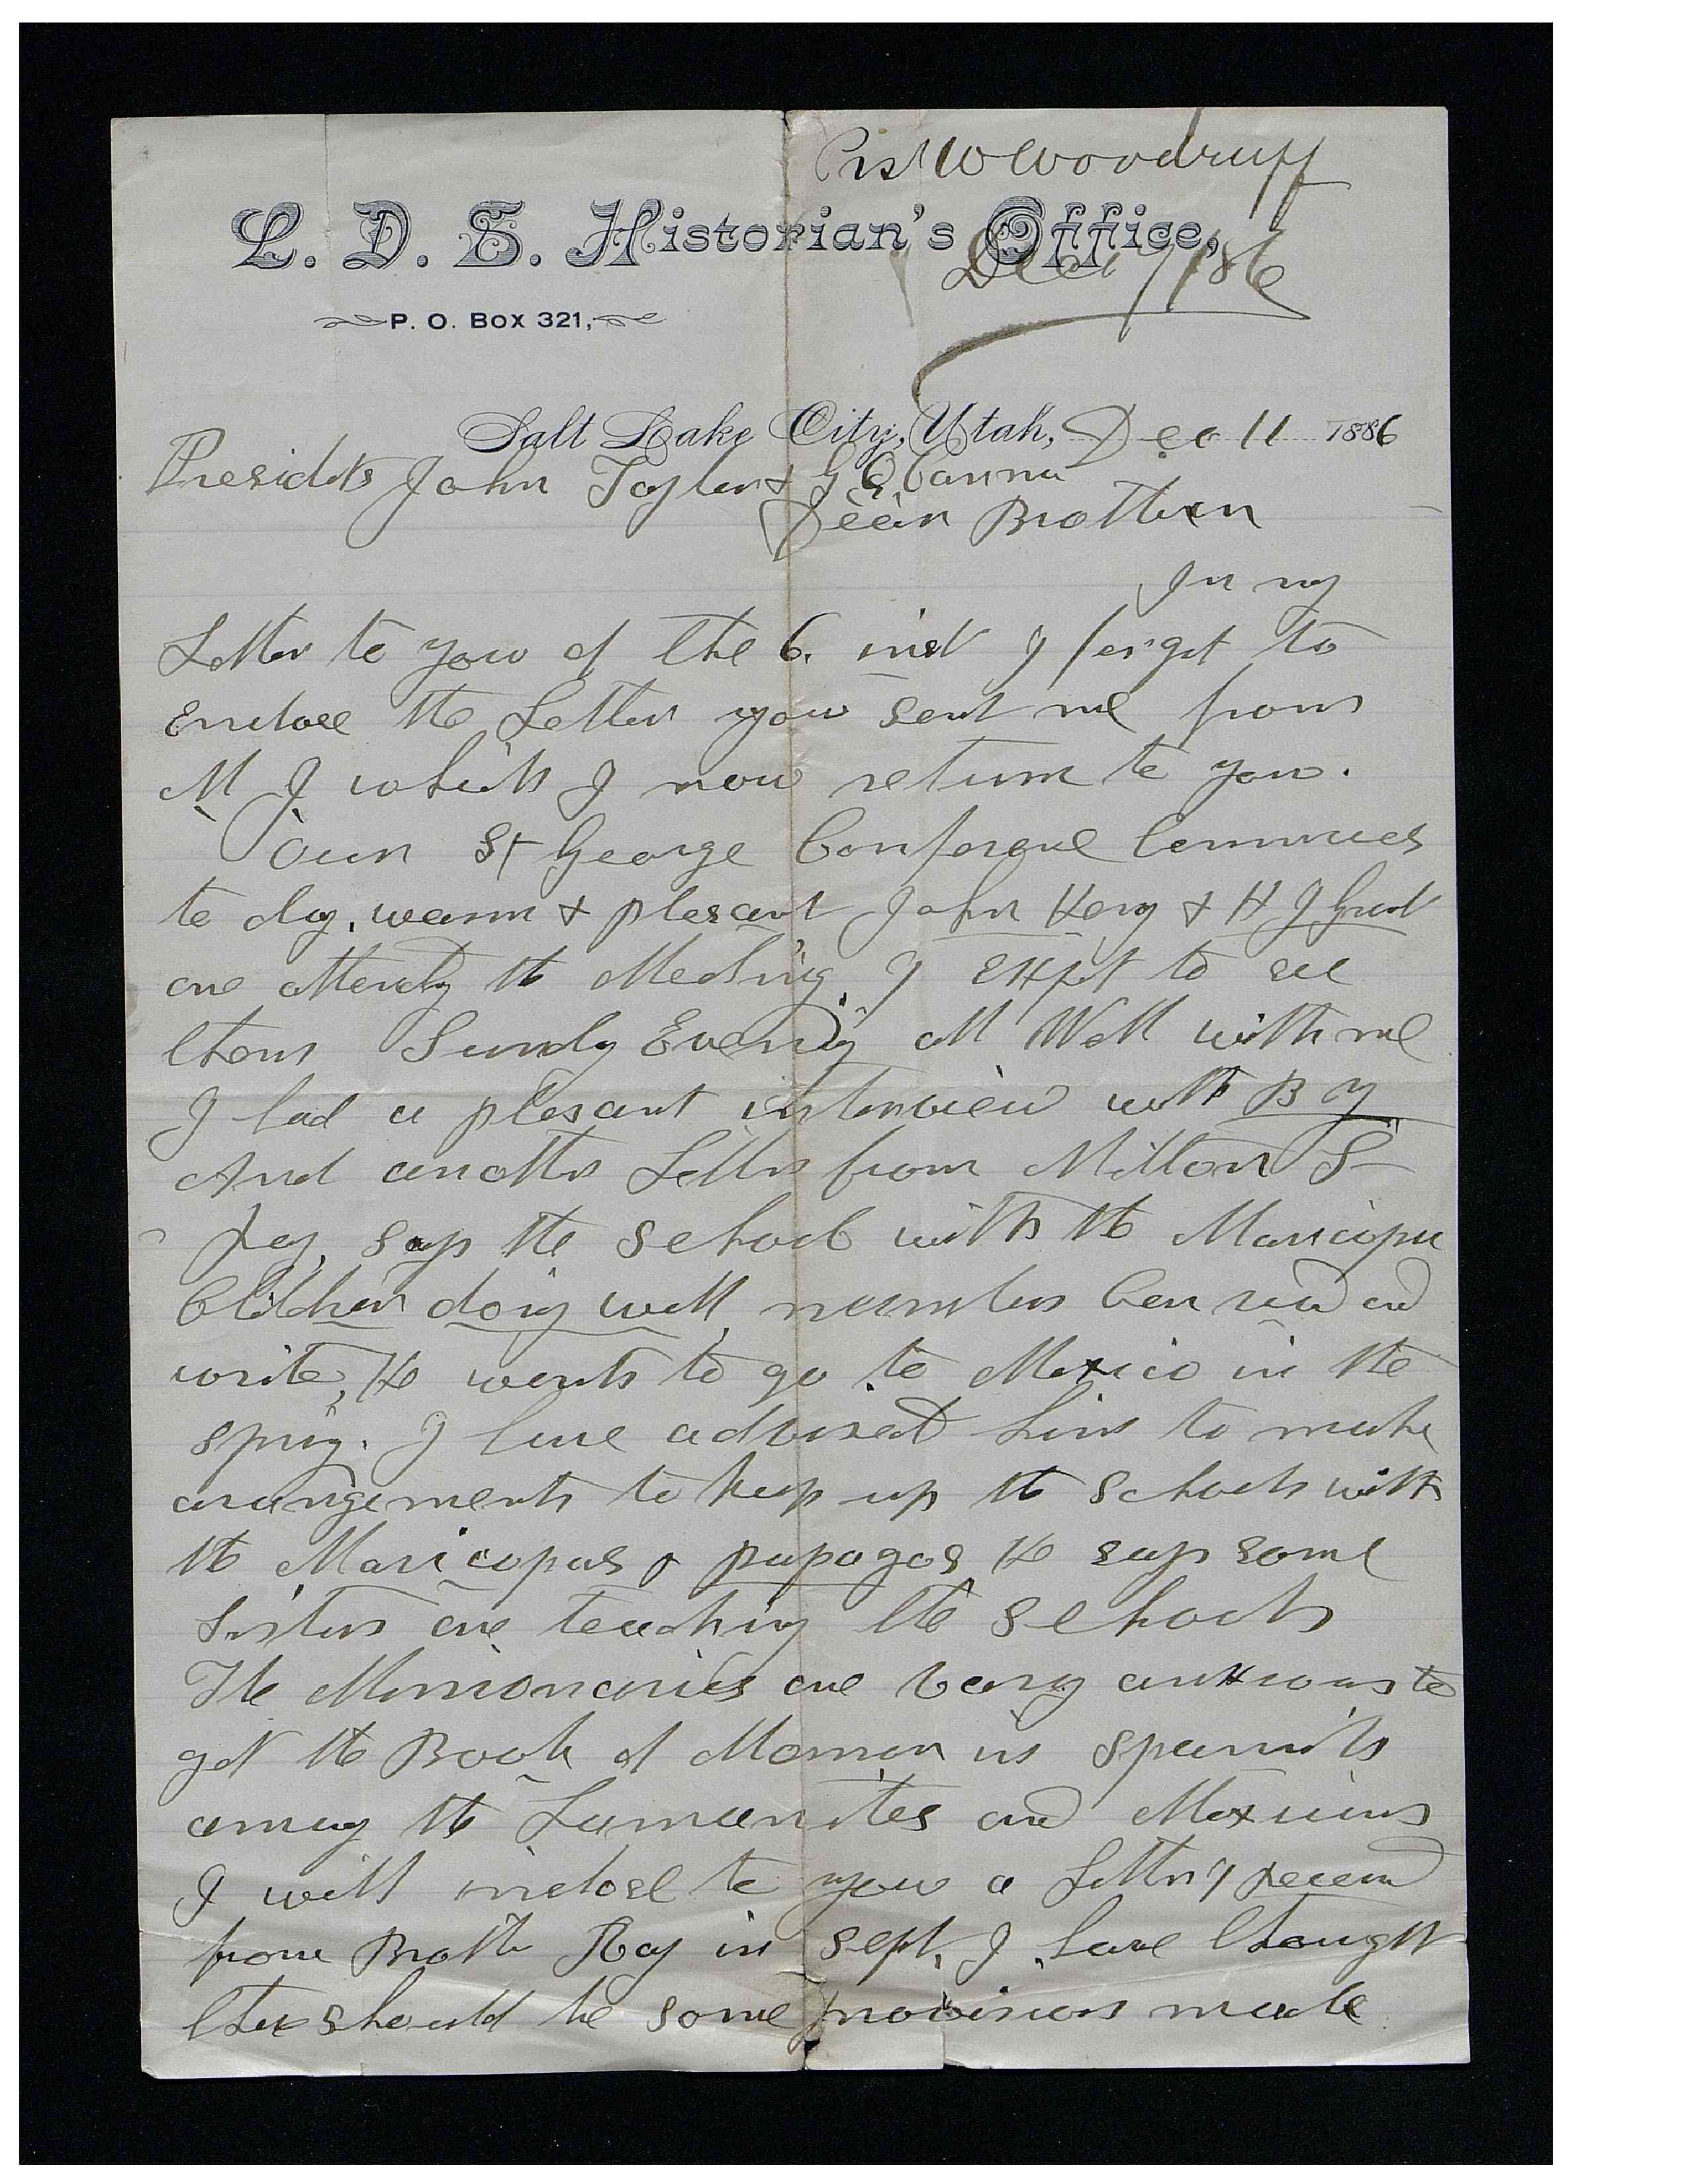 Prst W Woodruff
L. D. S. Historian's Office,
Dec 11/86
P. O. Box 321,
Salt Lake City, Utah, Dec 11 1886
Presidets John Taylor & G Q Cannon
Dear Brethren
In my
Letter to you of the 6. inst I forgot to
Enclose the Letter you sent me from
M I which I now return to you.
Our St George Conference Commences
to day. warm & plesant John Henry & H J Grant
are attendg the Meeting. I expt to see
them Sundy Evening all Well with me
I had a plesant interview with B Y
And another Letter from Milton S
Ray, says the school with the Maricopa
Children doing well, numbers Can read and
write, He wants to go to Mexico in the
spring. I have advised him to make
arangements to keep up the schools with
the Maricopas & papagos He says some
Sisters are teaching the schools
The Missionaries are very anxious to
get the Book of Mormon in Spanish
among the Lamanites and Mexicans
I will inclose to you a Letter I receivd
from Brother Ray in Sept, I have thought
ther should be some provisions made